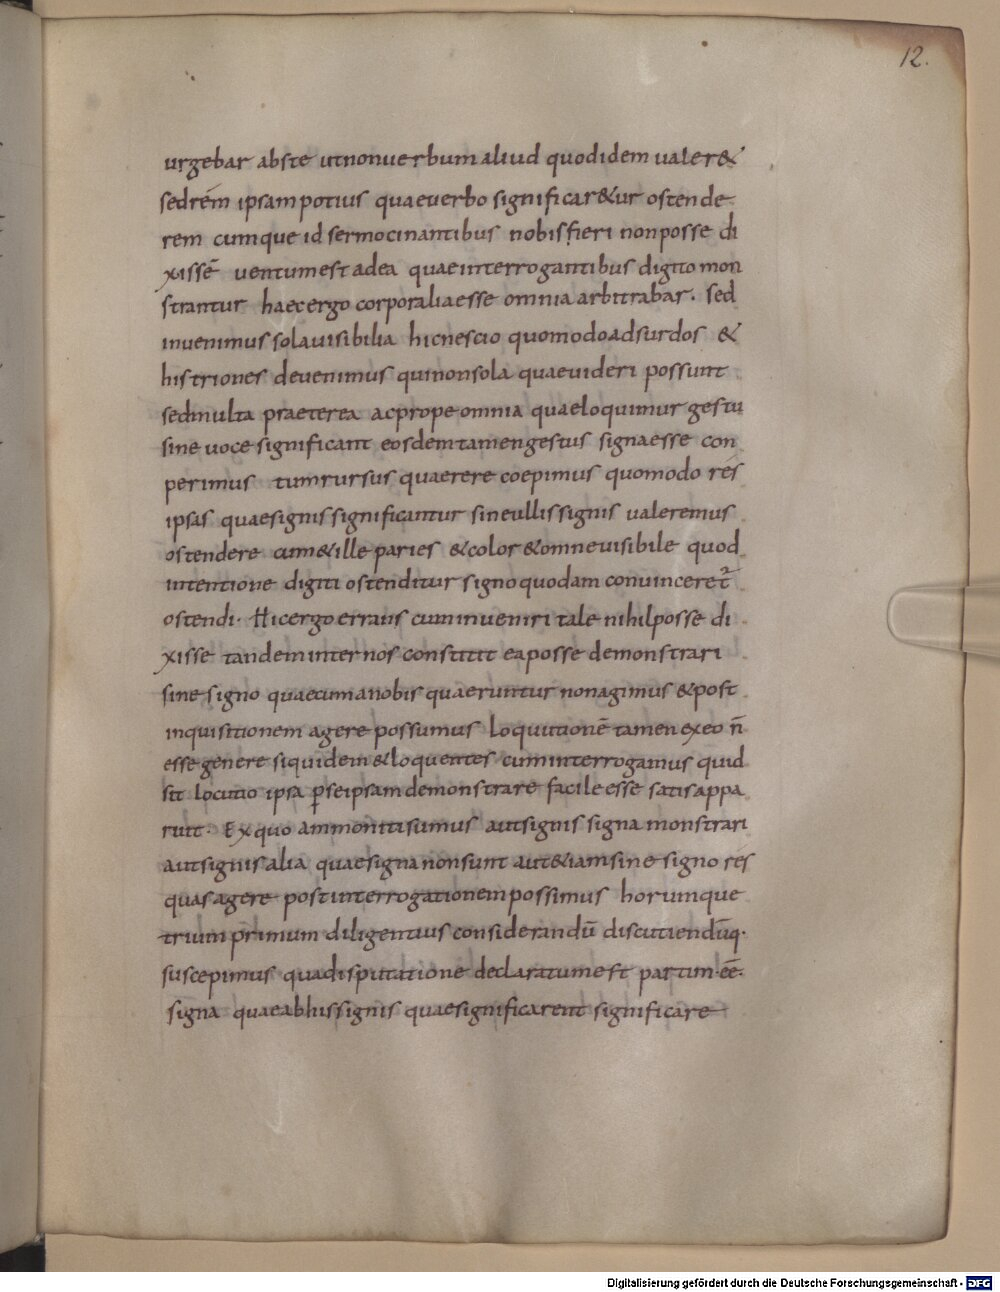 12.
urgebar abs te ut non uerbum aliud quod idem ualer&
sed rem ipsam potius quae uerbo significar&ur ostende
rem cumque id sermocinantibus nobis fieri non posse di
xissē uentum est ad ea quae interrogantibus digito mon
strantur haec ergo corporalia esse omnia arbitrabar. sed
inuenimus sola uisibilia hic nescio quomodo ad surdos &
histriones deuenimus qui non sola quae uideri possunt
sed multa praeterea ac prope omnia quae loquimur gestu
sine uoce significant eosdem tamen gestus signa esse con
perimus tum rursus quaerere coepimus quomodo res
ipsas quae signis significantur sine ullis signis ualeremus
ostendere cum & ille paries & color & omne uisibile quod
intentione digiti ostenditur signo quodam conuinceret̄
ostendi. Hic ergo errans cum inueniri tale nihil posse di
xisse tandem inter nos constitit ea posse demonstrari
sine signo quae cum a nobis quaeruntur non agimus & post
inquisitionem agere possumus loquutionē tamen ex eo n̄
esse genere siquidem & loquentes cum interrogamus quid
sit locutio ipsa ꝑ se ipsam demonstrare facile esse satis appa
ruit. Ex quo ammoniti sumus aut signis signa monstrari
aut signis alia quae signa non sunt aut &iam sine signo res
quas agere post interrogationem possimus horumque
trium primum diligentius considerandū discutiendūq.
suscepimus qua disputatione declaratum est partim ēē
signa quae ab his signis quae significarent significare
Digitalisierung gefördert durch die Deutsche Forschungsgemeinschaft - DFG